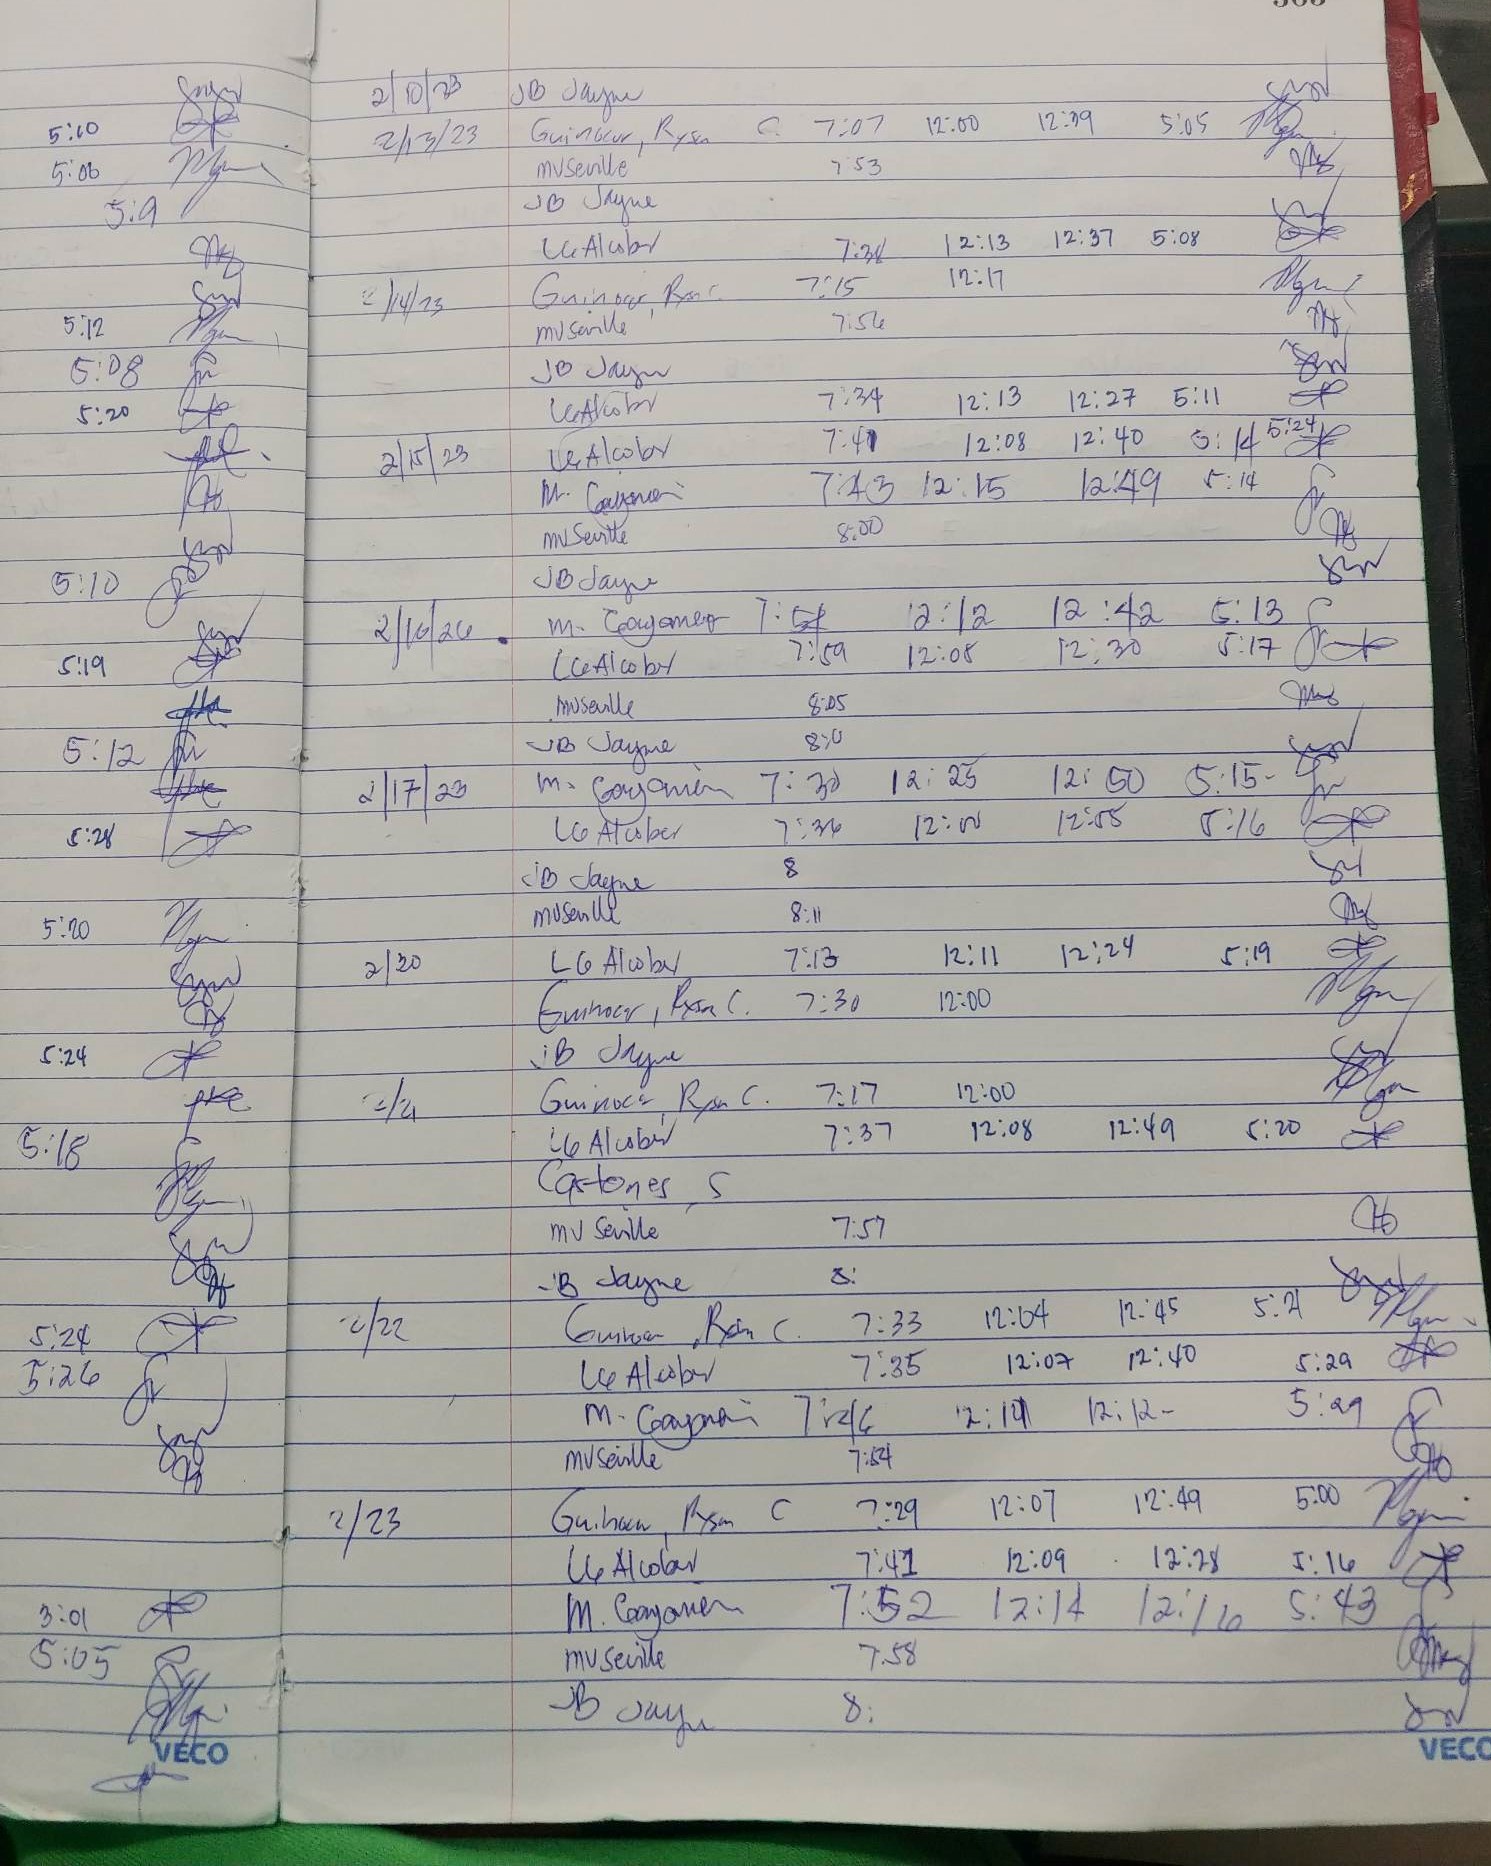 5:10
5:06
5:9
5:12
5:08
5:20
5:10
5:19
5:12
5:28
5:20
5:24
5:18
5:24
5:26
3:01
5:05
VECO
2/10/23 JB Jayne
2/13/23 Guinocor, Ryan C. 7:07 12:00 12:39 5:05
mvseville 7:53
JB Jayne
LG Alcober 7:38 12:13 12:37 5:08
2/14/23 Guinocor, Ryan C. 7:15 12:17
mvseville 7:56
JB Jayne
LG Alcober 7:34 12:13 12:27 5:11
2/15/23 LG Alcober 7:41 12:08 12:40 5:14 5:24
M. Gayanen 7:43 12:15 12:49 5:14
mvseville 8:00
JB Jayne
2/16/26 M. Gayanen 7:54 12:12 12:42 5:13
LG Alcober 7:59 12:08 12:30 5:17
mvseville 8:05
JB Jayne
2/17/23 M. Gayanen 7:30 12:25 12:50 5:15
LG Alcober 7:36 12:00 12:55 5:16
JB Jayne 8
mvseville 8:11
2/20 LG Alcober 7:13 12:11 12:24 5:19
Guinocor, Ryan C. 7:30 12:00
JB Jayne
Guinocor, Ryan C. 7:17 12:00
LG Alcober 7:37 12:08 12:49 5:20
Castones, S
mv Seville 7:57
JB Jayne 8:
2/22 Guinocor, Ryan C. 7:33 12:04 12:45 5:21
LG Alcober 7:35 12:07 12:40 5:29
M. Gayanen 7:46 12:14 12:12 5:29
mvseville 7:54
2/23 Guinocor, Ryan C 7:29 12:07 12:49 5:00
LG Alcober 7:41 12:09 12:28 5:16
M. Gayanen 7:52 12:14 12:16 5:43
mvseville 7:58
JB Jayne 8:
VECO